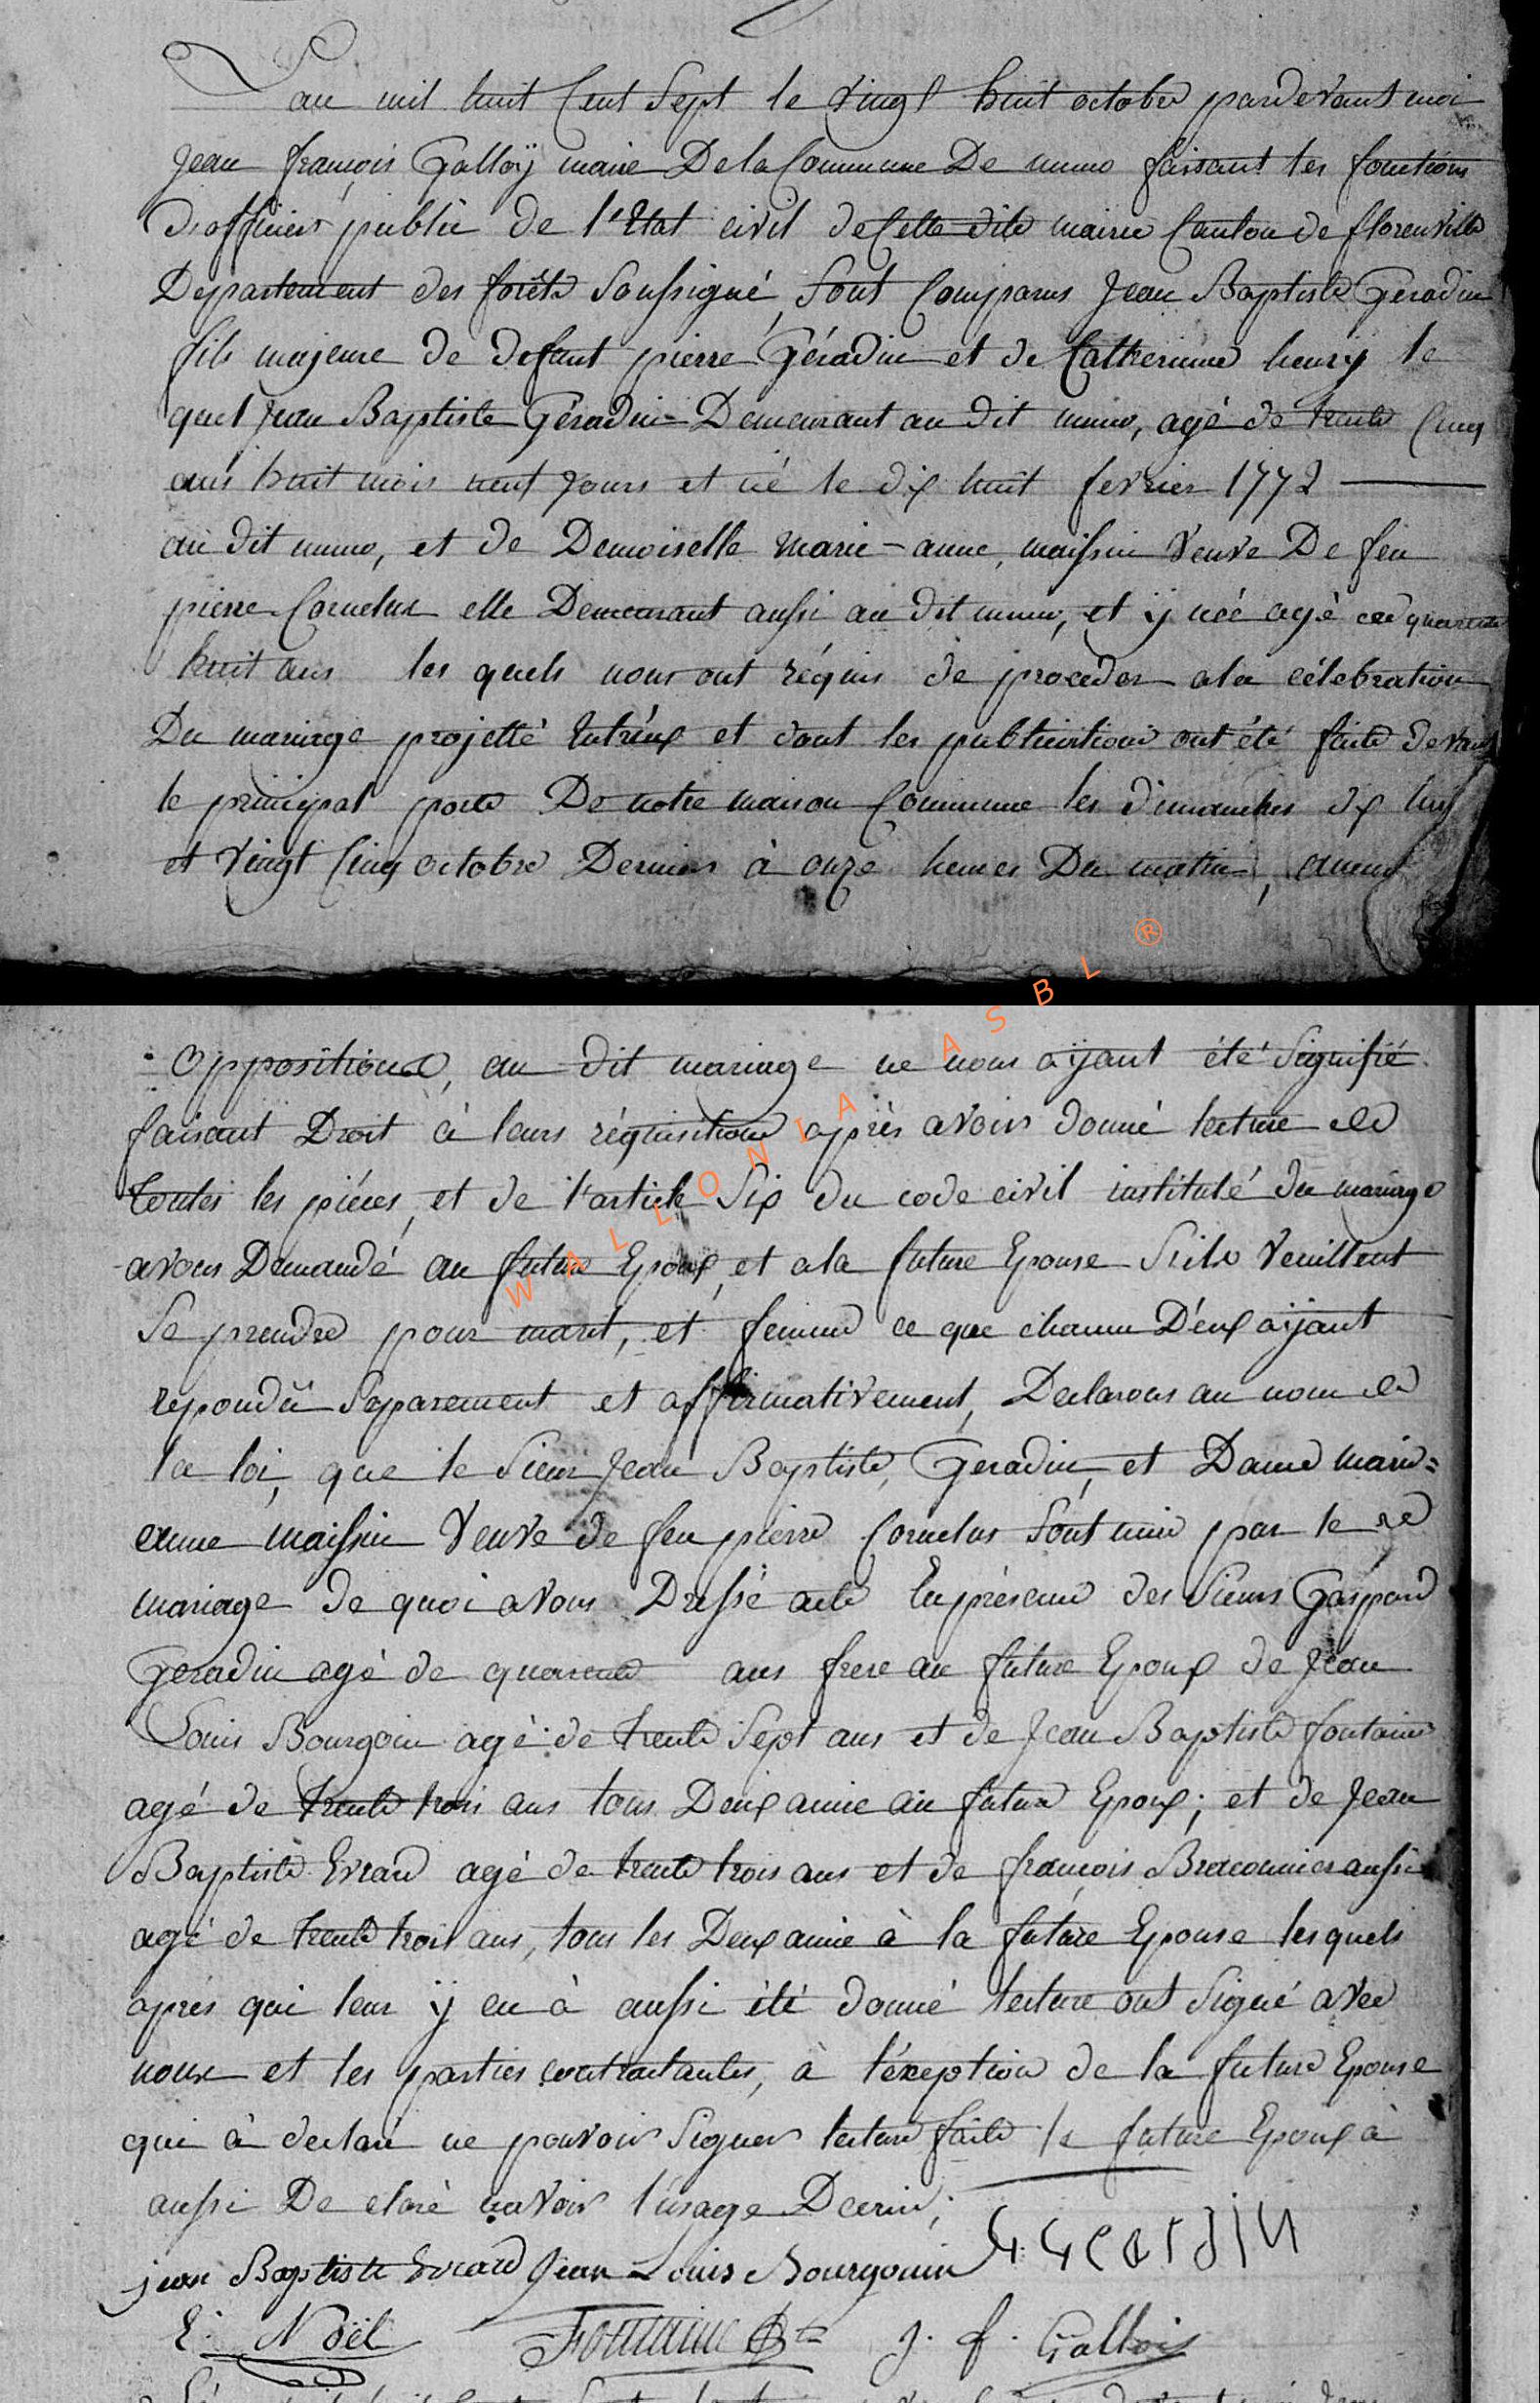 L'an mil huit Cent Sept le vingt huit octobre pardevant moi
Jean françois Galloÿ maire De la Commune De muno faisant les fonctions
d'officier public de l'Etat civil de Cette dite mairie Canton de florenville
Departement des forêts Soussigné, Sont Comparus Jean Baptiste Geradin
fils majeure de defunt pierre Géradin et de Catherinne henrÿ le
quel Jean Baptiste Géradin Demeurant au dit muno, agé de trente Cinq
ans huit mois neuf Jours et né le dix huit fevrier 1772
au dit muno, et de Demoiselle Marie-anne, maissin Veuve De feu
pierre Cornelus elle Demeurant aussi au dit muno, et ÿ née agé de quarente
huit ans les quels nous ont réquis de proceder a la célebration
Du mariage projetté Entréux et dont les publications ont été faite devant
le principal porte De notre maison Commune les dimanches dix huit
et vingt Cinq octobre Dernier à onze heures Du matin, aucune
oppositions, au dit mariage ne nous aÿant été Signifié
faisant Droit à leurs réquisitions après avoir donné lecture de
toutes les piéces, et de l'article Six du code civil institulé du mariage
avons Demandé au future Epoux, et a la future Epouse S'ils veuillent
Se prendre pour marit, et femme ce que chacun D'éux aÿant
repondu Separement et affirmativement, Declarons au nom de
la loi, que le Sieur Jean Baptiste, Geradin, et Dame marie=
anne maissin Veuve de feu pierre Cornelus Sont unie par le
mariage de quoi avons Dressé acte En présence des Sieurs Gaspard
Geradin agé de quarente ans frere au future Epoux de Jean
Louis Bourgoin agé de trente Sept ans et de Jean Baptiste fontaine
agé de trente trois ans tous Deux amie au futur Epoux; et de Jean
Baptiste Evrard agé de trente trois ans et de françois Braconnier aussi
agé de trente trois ans, tous les Deux amie à la future Epouse lesquels
aprés qui leur ÿ en à aussi été donné lecture ont Signé avec
nous et les parties contractantes, à l'éxeption de la future Epouse
qui à declaré ne pouvoir Signer lecture faite le future Epoux à
aussi De claré navoir l'usage Decrire;
jean Baptiste Evrard Jean-Louis Bourgouin G Geardin
E. Noël Fontaine Bte J. f. Gallois
WALLONIA ASBL ®